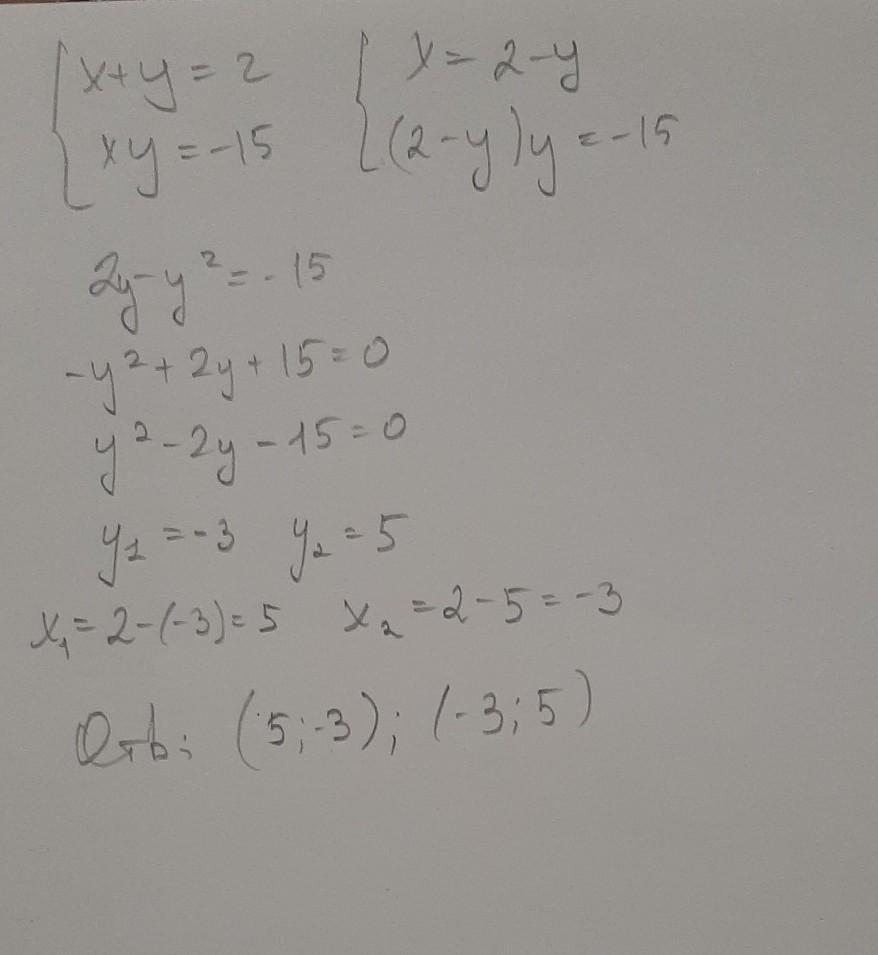 { x+y=2 { x=2-y
xy=-15 (2-y)y=-15
2y-y²=-15
-y²+2y+15=0
y²-2y-15=0
y₁=-3 y₂=5
x₁=2-(-3)=5 x₂=2-5=-3
Отв: (5;-3); (-3;5)